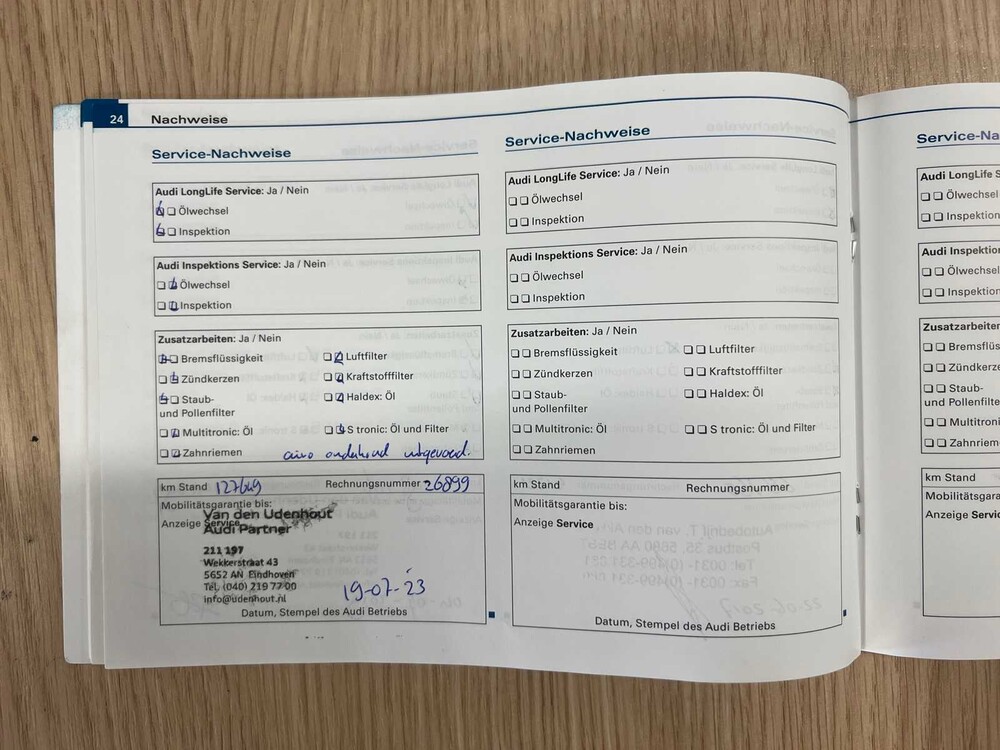 24 Nachweise
Service-Nachweise
Audi LongLife Service: Ja / Nein
Ölwechsel
Inspektion
Audi Inspektions Service: Ja / Nein
Ölwechsel
Inspektion
Zusatzarbeiten: Ja / Nein
Bremsflüssigkeit Luftfilter
Zündkerzen Kraftstofffilter
Staub- Haldex: Öl
und Pollenfilter
Multitronic: Öl S tronic: Öl und Filter
Zahnriemen
airco onderhoud uitgevoerd.
km Stand 127649 Rechnungsnummer 26899
Mobilitätsgarantie bis:
Anzeige Service
Van den Udenhout
Audi Partner
211 197
Wekkerstraat 43
5652 AN Eindhoven
Tel. (040) 219 77 00
info@udenhout.nl
19-07-'23
Datum, Stempel des Audi Betriebs
Service-Nachweise
Audi LongLife Service: Ja / Nein
Ölwechsel
Inspektion
Audi Inspektions Service: Ja / Nein
Ölwechsel
Inspektion
Zusatzarbeiten: Ja / Nein
Bremsflüssigkeit Luftfilter
Zündkerzen Kraftstofffilter
Staub- Haldex: Öl
und Pollenfilter
Multitronic: Öl S tronic: Öl und Filter
Zahnriemen
km Stand Rechnungsnummer
Mobilitätsgarantie bis:
Anzeige Service
Datum, Stempel des Audi Betriebs
Service-Na
Audi LongLife S
Ölwechsel
Inspektion
Audi Inspektion
Ölwechsel
Inspektion
Zusatzarbeiten
Bremsflüs
Zündkerze
Staub-
und Pollenfilter
Multitronic
Zahnriemen
km Stand
Mobilitätsgarant
Anzeige Servic